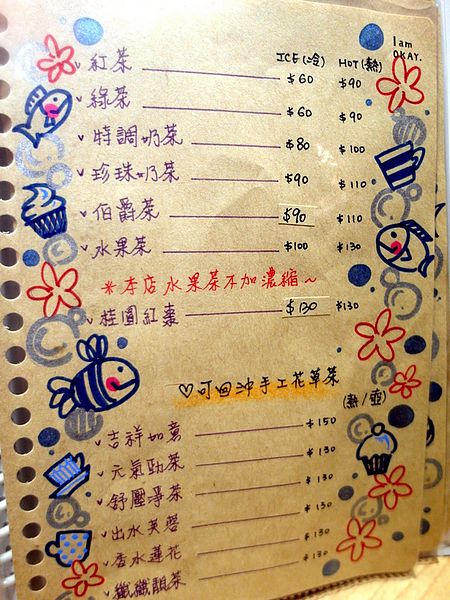 I am
OKAY.
ICE(冷) HOT(熱)
紅茶 $60 $90
綠茶 $60 $90
特調奶茶 $80 $100
珍珠奶茶 $90 $110
伯爵茶 $90 $110
水果茶 $100 $130
*本店水果茶不加濃縮~
桂圓紅棗 $130 $130
♡可回沖手工花草茶
(熱/壺)
吉祥如意 $150
元氣勁茶 $130
舒壓淨茶 $130
出水芙蓉 $130
香水蓮花 $130
纖纖靚茶 $130